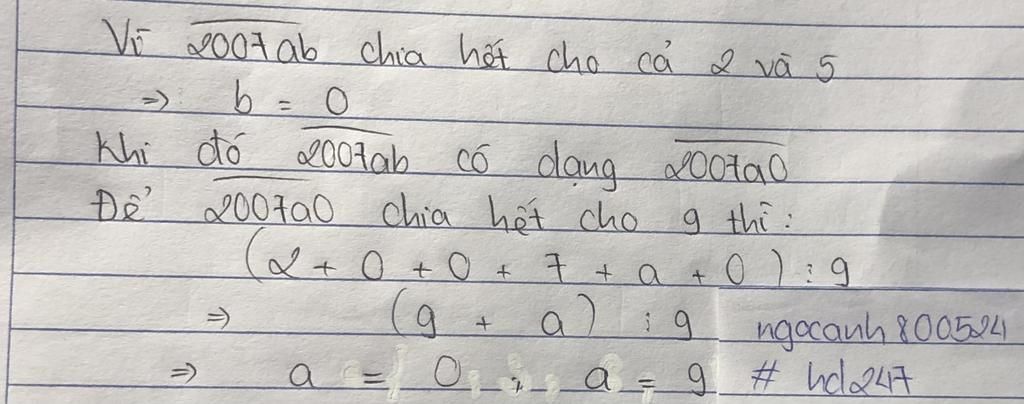 Vì 2007ab chia hết cho cả 2 và 5
=> b = 0
Khi đó 2007ab có dạng 2007a0
Để 2007a0 chia hết cho 9 thì:
(2 + 0 + 0 + 7 + a + 0) ⋮ 9
=> (9 + a) ⋮ 9 ngocanh800524
=> a = 0 ; a = 9 # hd247